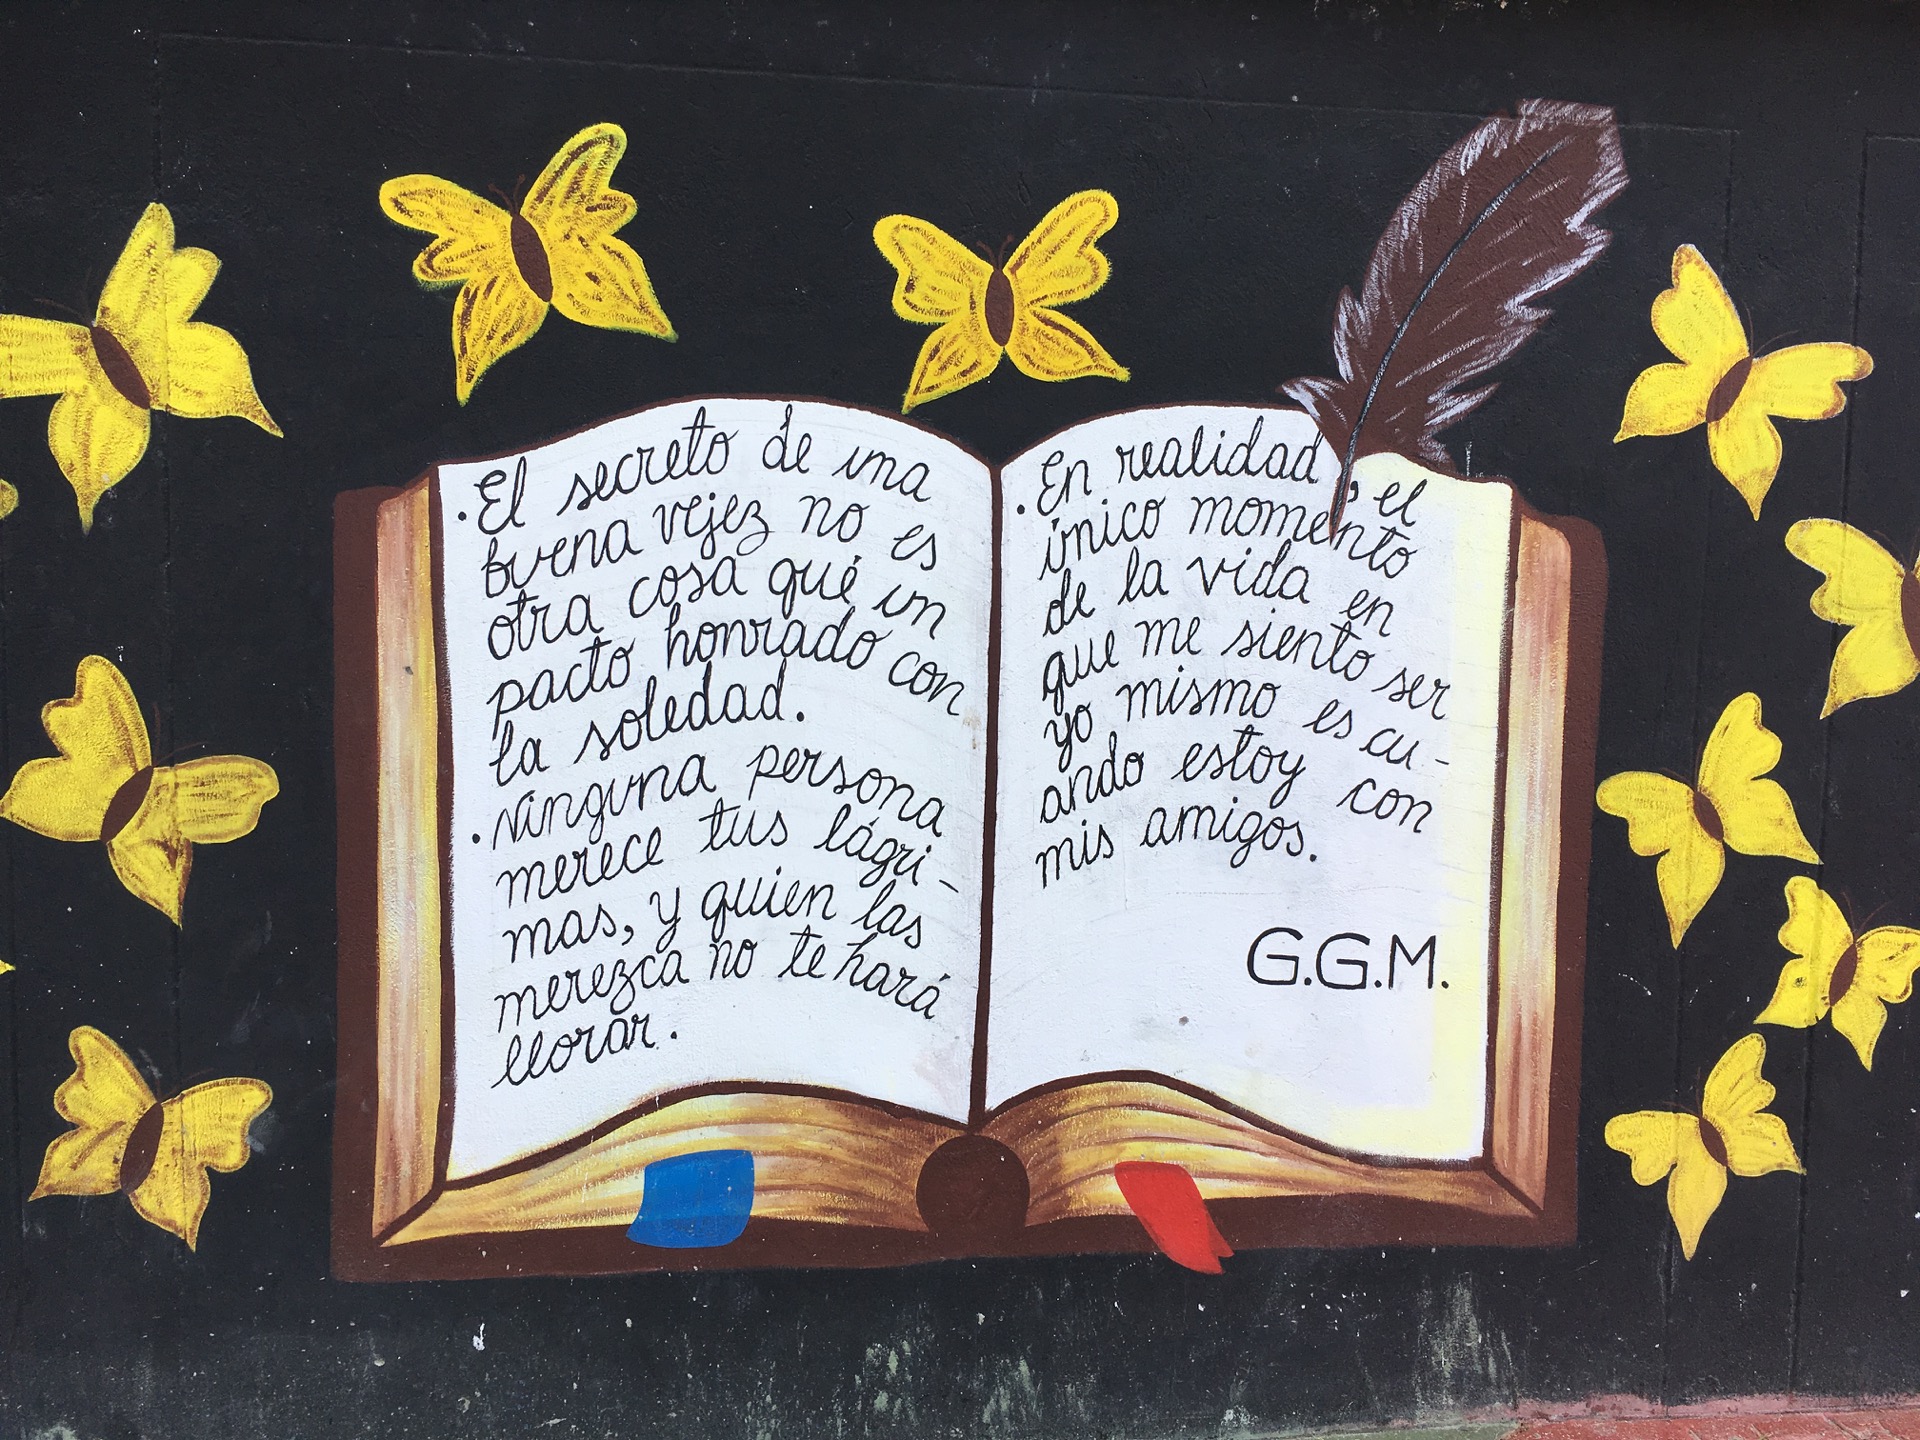 · El secreto de una
buena vejez no es
otra cosa qué un
pacto honrado con
la soledad.
· Ninguna persona
merece tus lágri-
mas, y quien las
merezca no te hará
llorar.
· En realidad, el
único momento
de la vida en
que me siento ser
yo mismo es cu-
ando estoy con
mis amigos.
G.G.M.